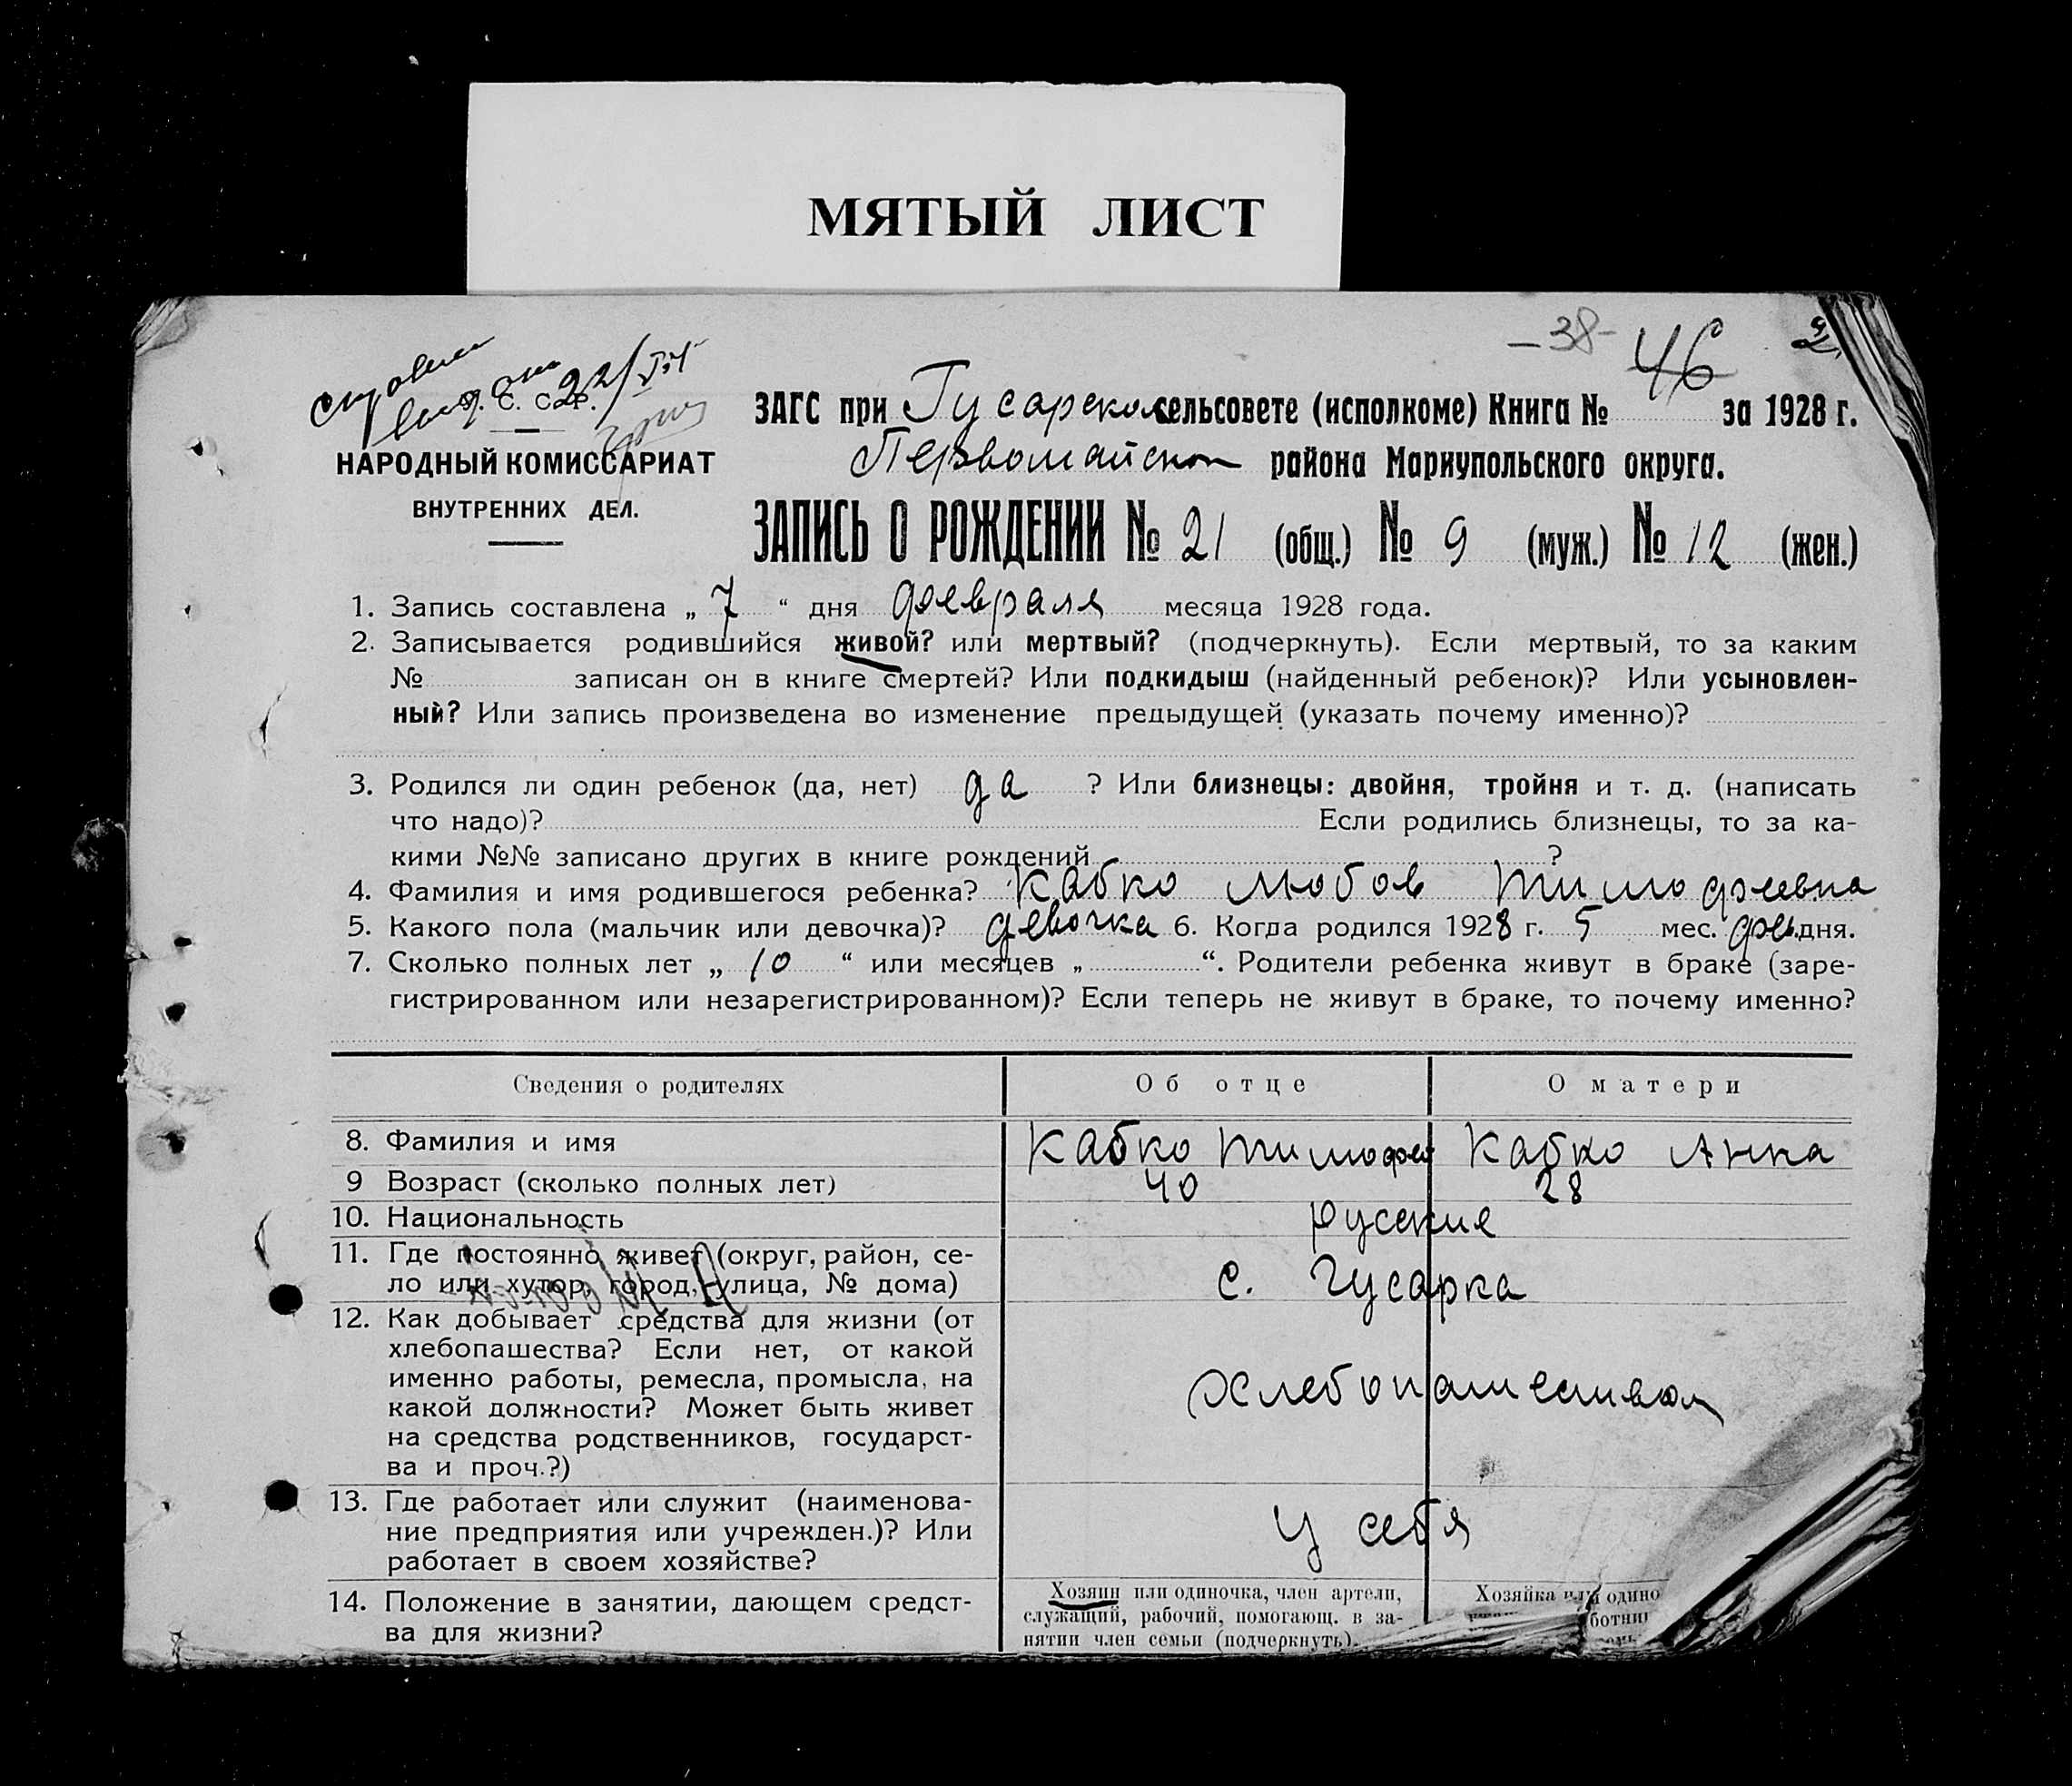 МЯТЫЙ ЛИСТ
-38-
46
2
22/IV
У. С. С. Р.
НАРОДНЫЙ КОМИССАРИАТ
ВНУТРЕННИХ ДЕЛ.
ЗАГС при Гусарском сельсовете (исполкоме) Книга № за 1928 г.
Первомайском района Мариупольского округа.
ЗАПИСЬ О РОЖДЕНИИ № 21 (общ.) № 9 (муж.) № 12 (жен.)
1. Запись составлена „ 7 “ дня февраля месяца 1928 года.
2. Записывается родившийся живой? или мертвый? (подчеркнуть). Если мертвый, то за каким
№ записан он в книге смертей? Или подкидыш (найденный ребенок)? Или усыновлен-
ный? Или запись произведена во изменение предыдущей (указать почему именно)?
3. Родился ли один ребенок (да, нет) да ? Или близнецы: двойня, тройня и т. д. (написать
что надо)? Если родились близнецы, то за ка-
кими №№ записано других в книге рождений ?
4. Фамилия и имя родившегося ребенка? Кабко Любов Тимофеевна
5. Какого пола (мальчик или девочка)? девочка 6. Когда родился 1928 г. 5 мес. фев. дня.
7. Сколько полных лет „ 10 “ или месяцев „ “. Родители ребенка живут в браке (заре-
гистрированном или незарегистрированном)? Если теперь не живут в браке, то почему именно?
Сведения о родителях Об отце О матери
8. Фамилия и имя Кабко Тимофей Кабко Анна
9 Возраст (сколько полных лет) 40 28
10. Национальность русские
11. Где постоянно живет (округ, район, се-
ло или хутор, город, улица, № дома) с. Гусарка
12. Как добывает средства для жизни (от
хлебопашества? Если нет, от какой
именно работы, ремесла, промысла, на
какой должности? Может быть живет
на средства родственников, государст-
ва и проч.?)
хлебопашеством
13. Где работает или служит (наименова-
ние предприятия или учрежден.)? Или
работает в своем хозяйстве?
у себя
14. Положение в занятии, дающем средст-
ва для жизни?
Хозяин или одиночка, член артели,
служащий, рабочий, помогающ. в за-
нятии член семьи (подчеркнуть).
Хозяйка или одино